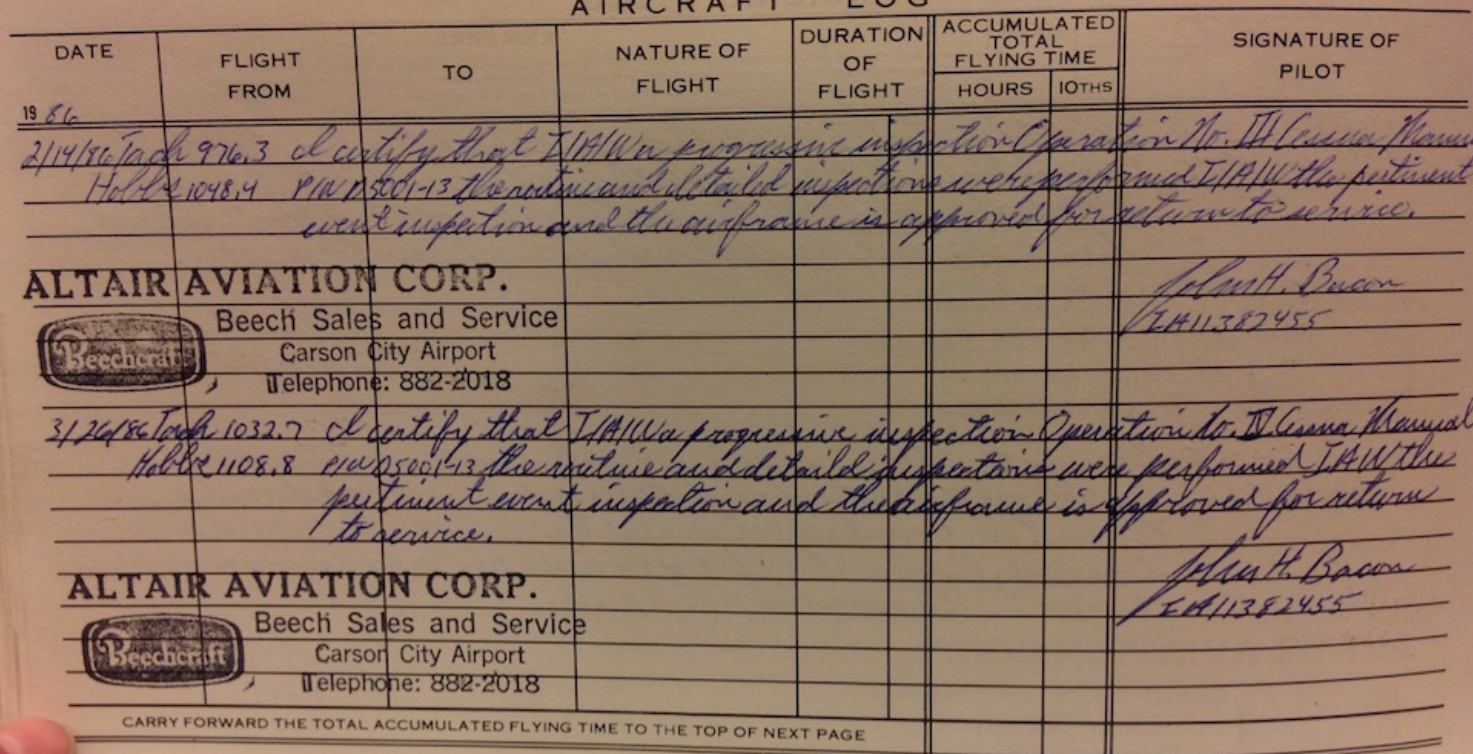 AIRCRAFT LOG
DATE FLIGHT FROM TO NATURE OF FLIGHT DURATION OF FLIGHT ACCUMULATED TOTAL FLYING TIME HOURS 10THS SIGNATURE OF PILOT
19 86
2/14/86 Tach 976.3 I certify that I/A/W a progressive inspection Operation No. III Cessna
Hobbs 1048.4 P/N D5001-13 the routine and detailed inspections were performed I/A/W the pertinent
event inspection and the airframe is approved for return to service.
ALTAIR AVIATION CORP.
Beechcraft
Beech Sales and Service
Carson City Airport
Telephone: 882-2018
John H. Bacon
IA11382455
3/26/86 Tach 1032.7 I certify that I/A/W a progressive inspection Operation No. IV Cessna Manual
Hobbs 1108.8 P/N D5001-13 the routine and detaild inspections were performed IAW the
pertinent event inspection and the airframe is approved for return
to service.
ALTAIR AVIATION CORP.
Beechcraft
Beech Sales and Service
Carson City Airport
Telephone: 882-2018
John H. Bacon
IA11382455
CARRY FORWARD THE TOTAL ACCUMULATED FLYING TIME TO THE TOP OF NEXT PAGE